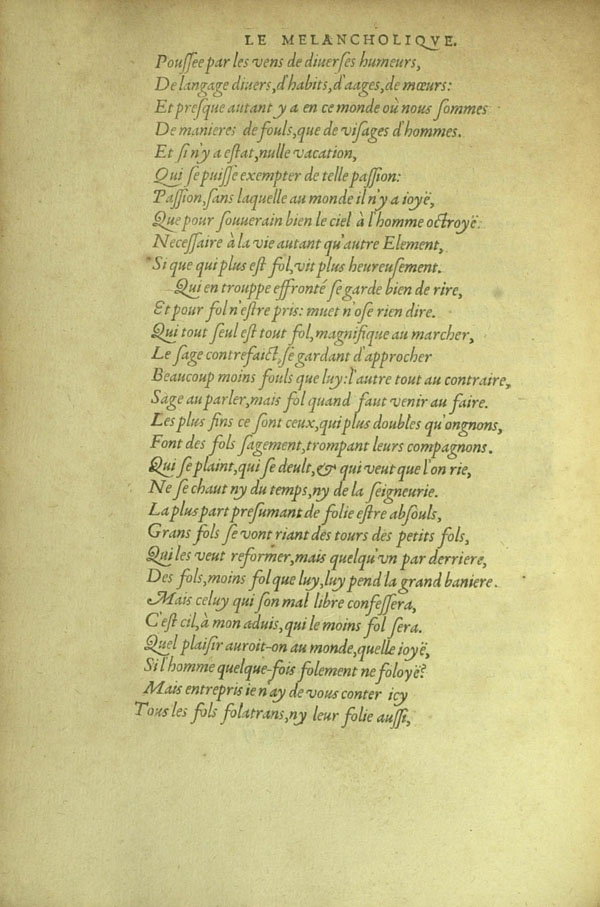 LE MELANCHOLIQVE.
Pouſſee par les vens de diuerſes humeurs,
De langage diuers, d'habits, d'aages, de mœurs:
Et preſque autant y a en ce monde où nous ſommes
De manieres de fouls, que de viſages d'hommes.
Et ſi n'y a eſtat, nulle vacation,
Qui ſe puiſſe exempter de telle paſſion:
Paſſion, ſans laquelle au monde il n'y a ioyë,
Que pour ſouuerain bien le ciel à l'homme octroyë:
Neceſſaire à la vie autant qu'autre Element,
Si que qui plus eſt fol, vit plus heureuſement.
Qui en trouppe effronté ſe garde bien de rire,
Et pour fol n'eſtre pris: muet n'oſe rien dire.
Qui tout ſeul eſt tout fol, magnifique au marcher,
Le ſage contrefaict, ſe gardant d'approcher
Beaucoup moins fouls que luy: l'autre tout au contraire,
Sage au parler, mais fol quand faut venir au faire.
Les plus fins ce ſont ceux, qui plus doubles qu'ongnons,
Font des fols ſagement, trompant leurs compagnons.
Qui ſe plaint, qui ſe deult, & qui veut que l'on rie,
Ne ſe chaut ny du temps, ny de la ſeigneurie.
La plus part preſumant de folie eſtre abſouls,
Grans fols ſe vont riant des tours des petits fols,
Qui les veut reformer, mais quelqu'vn par derriere,
Des fols, moins fol que luy, luy pend la grand baniere.
Mais celuy qui ſon mal libre confeſſera,
C'eſt cil, à mon aduis, qui le moins fol ſera.
Quel plaiſir auroit-on au monde, quelle ioyë,
Si l'homme quelque-fois folement ne foloyë?
Mais entrepris ie n'ay de vous conter icy
Tous les fols folatrans, ny leur folie auſſi,